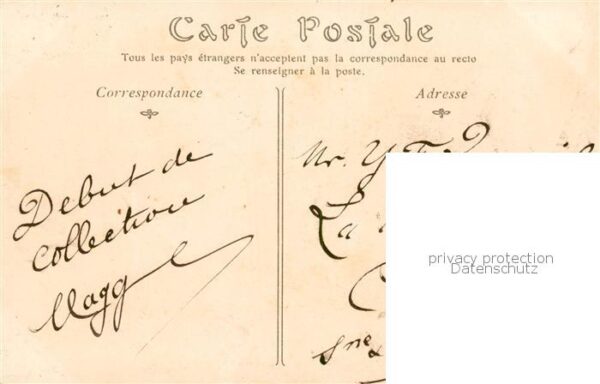 Carte Postale
Tous les pays étrangers n'acceptent pas la correspondance au recto
Se renseigner à la poste.
Correspondance
Adresse
Debut de
collection
Magg
Mr. Y
La
privacy protection
Datenschutz